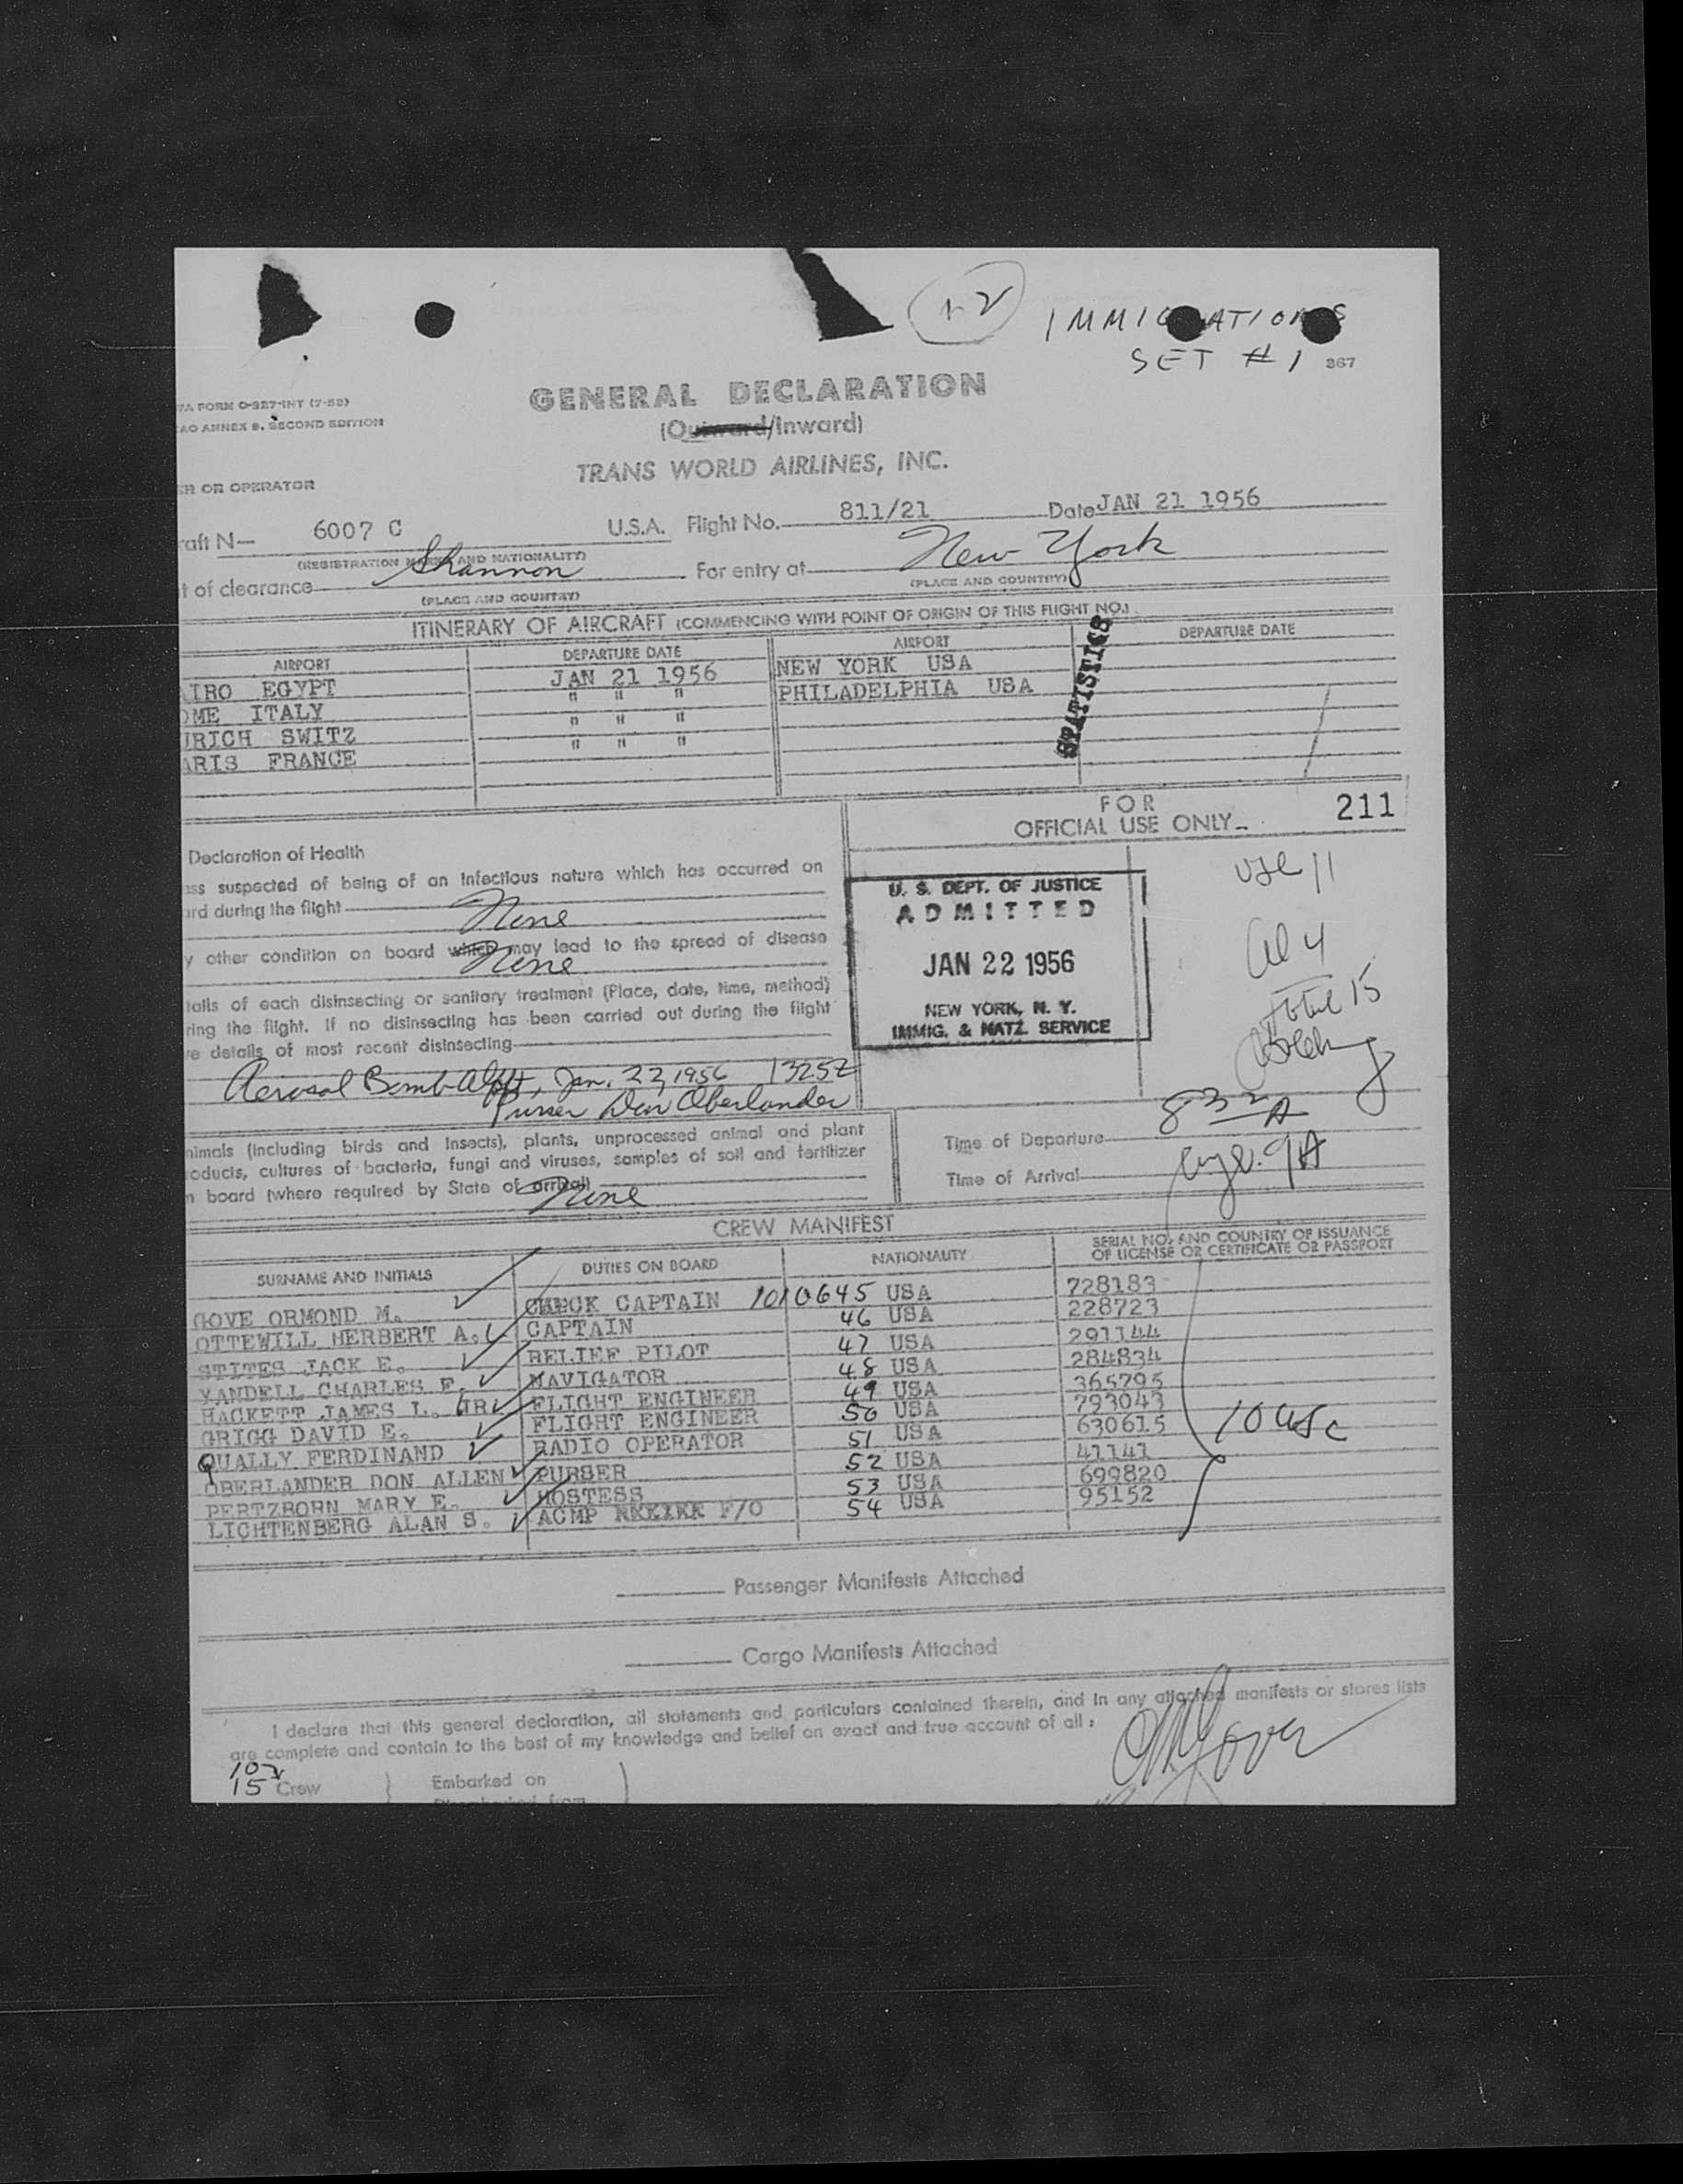 IMMIGRATIONS
SET # 1 367
GENERAL DECLARATION
(Outward/Inward)
TRANS WORLD AIRLINES, INC.
TA FORM O-927-INT (7-52)
AO ANNEX 9. SECOND EDITION
ER OR OPERATOR
raft N— 6007 C U.S.A. Flight No. 811/21 Date JAN 21 1956
(REGISTRATION MARKS AND NATIONALITY)
t of clearance Shannon For entry at New York
(PLACE AND COUNTRY) (PLACE AND COUNTRY)
ITINERARY OF AIRCRAFT (COMMENCING WITH POINT OF ORIGIN OF THIS FLIGHT NO.)
AIRPORT DEPARTURE DATE AIRPORT DEPARTURE DATE
AIRO EGYPT JAN 21 1956 NEW YORK USA
OME ITALY " " " PHILADELPHIA USA
URICH SWITZ " " "
ARIS FRANCE " " "
STATISTICS
FOR
OFFICIAL USE ONLY 211
Declaration of Health
ess suspected of being of an infectious nature which has occurred on
ard during the flight None
y other condition on board which may lead to the spread of disease
None
tails of each disinsecting or sanitary treatment (Place, date, time, method)
ring the flight. If no disinsecting has been carried out during the flight
ve details of most recent disinsecting
Aerosol Bomb Jan. 22, 1956 1325Z
Purser Don Oberlander
U. S. DEPT. OF JUSTICE
ADMITTED
JAN 22 1956
NEW YORK, N. Y.
IMMIG. & NATZ. SERVICE
use 11
al 4
total 15
nimals (including birds and insects), plants, unprocessed animal and plant
oducts, cultures of bacteria, fungi and viruses, samples of soil and fertilizer
n board (where required by State of arrival) None
Time of Departure 8 32 A
Time of Arrival 9 A
CREW MANIFEST
SURNAME AND INITIALS DUTIES ON BOARD NATIONALITY SERIAL NO. AND COUNTRY OF ISSUANCE
OF LICENSE OR CERTIFICATE OR PASSPORT
GOVE ORMOND M. CHECK CAPTAIN 1010645 USA 728183
OTTEWILL HERBERT A. CAPTAIN 46 USA 228723
STITES JACK E. RELIEF PILOT 47 USA 291144
YANDELL CHARLES F. NAVIGATOR 48 USA 284834
HACKETT JAMES L. JR FLIGHT ENGINEER 49 USA 365795
GRIGG DAVID E. FLIGHT ENGINEER 50 USA 793043
QUALLY FERDINAND RADIO OPERATOR 51 USA 630615
OBERLANDER DON ALLEN PURSER 52 USA 41141
PERTZBORN MARY E. HOSTESS 53 USA 699820
LICHTENBERG ALAN S. ACMP F/O 54 USA 95152
10 usc
Passenger Manifests Attached
Cargo Manifests Attached
I declare that this general declaration, all statements and particulars contained therein, and in any attached manifests or stores lists
are complete and contain to the best of my knowledge and belief an exact and true account of all :
15 Crew
Embarked on